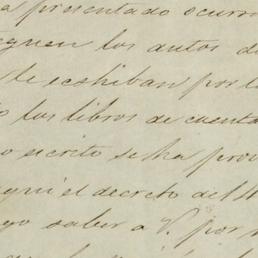 a presentado ocurr
eguen los autos d
le eschiban por l
o los libros de cuenta
o escrito se ha pro
qui el decreto del
go saber a V. por